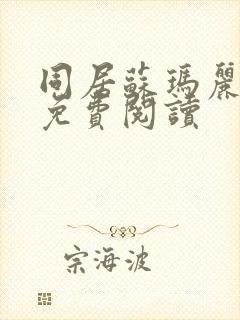 同居蘇瑪麗
免費閱讀
宗海波